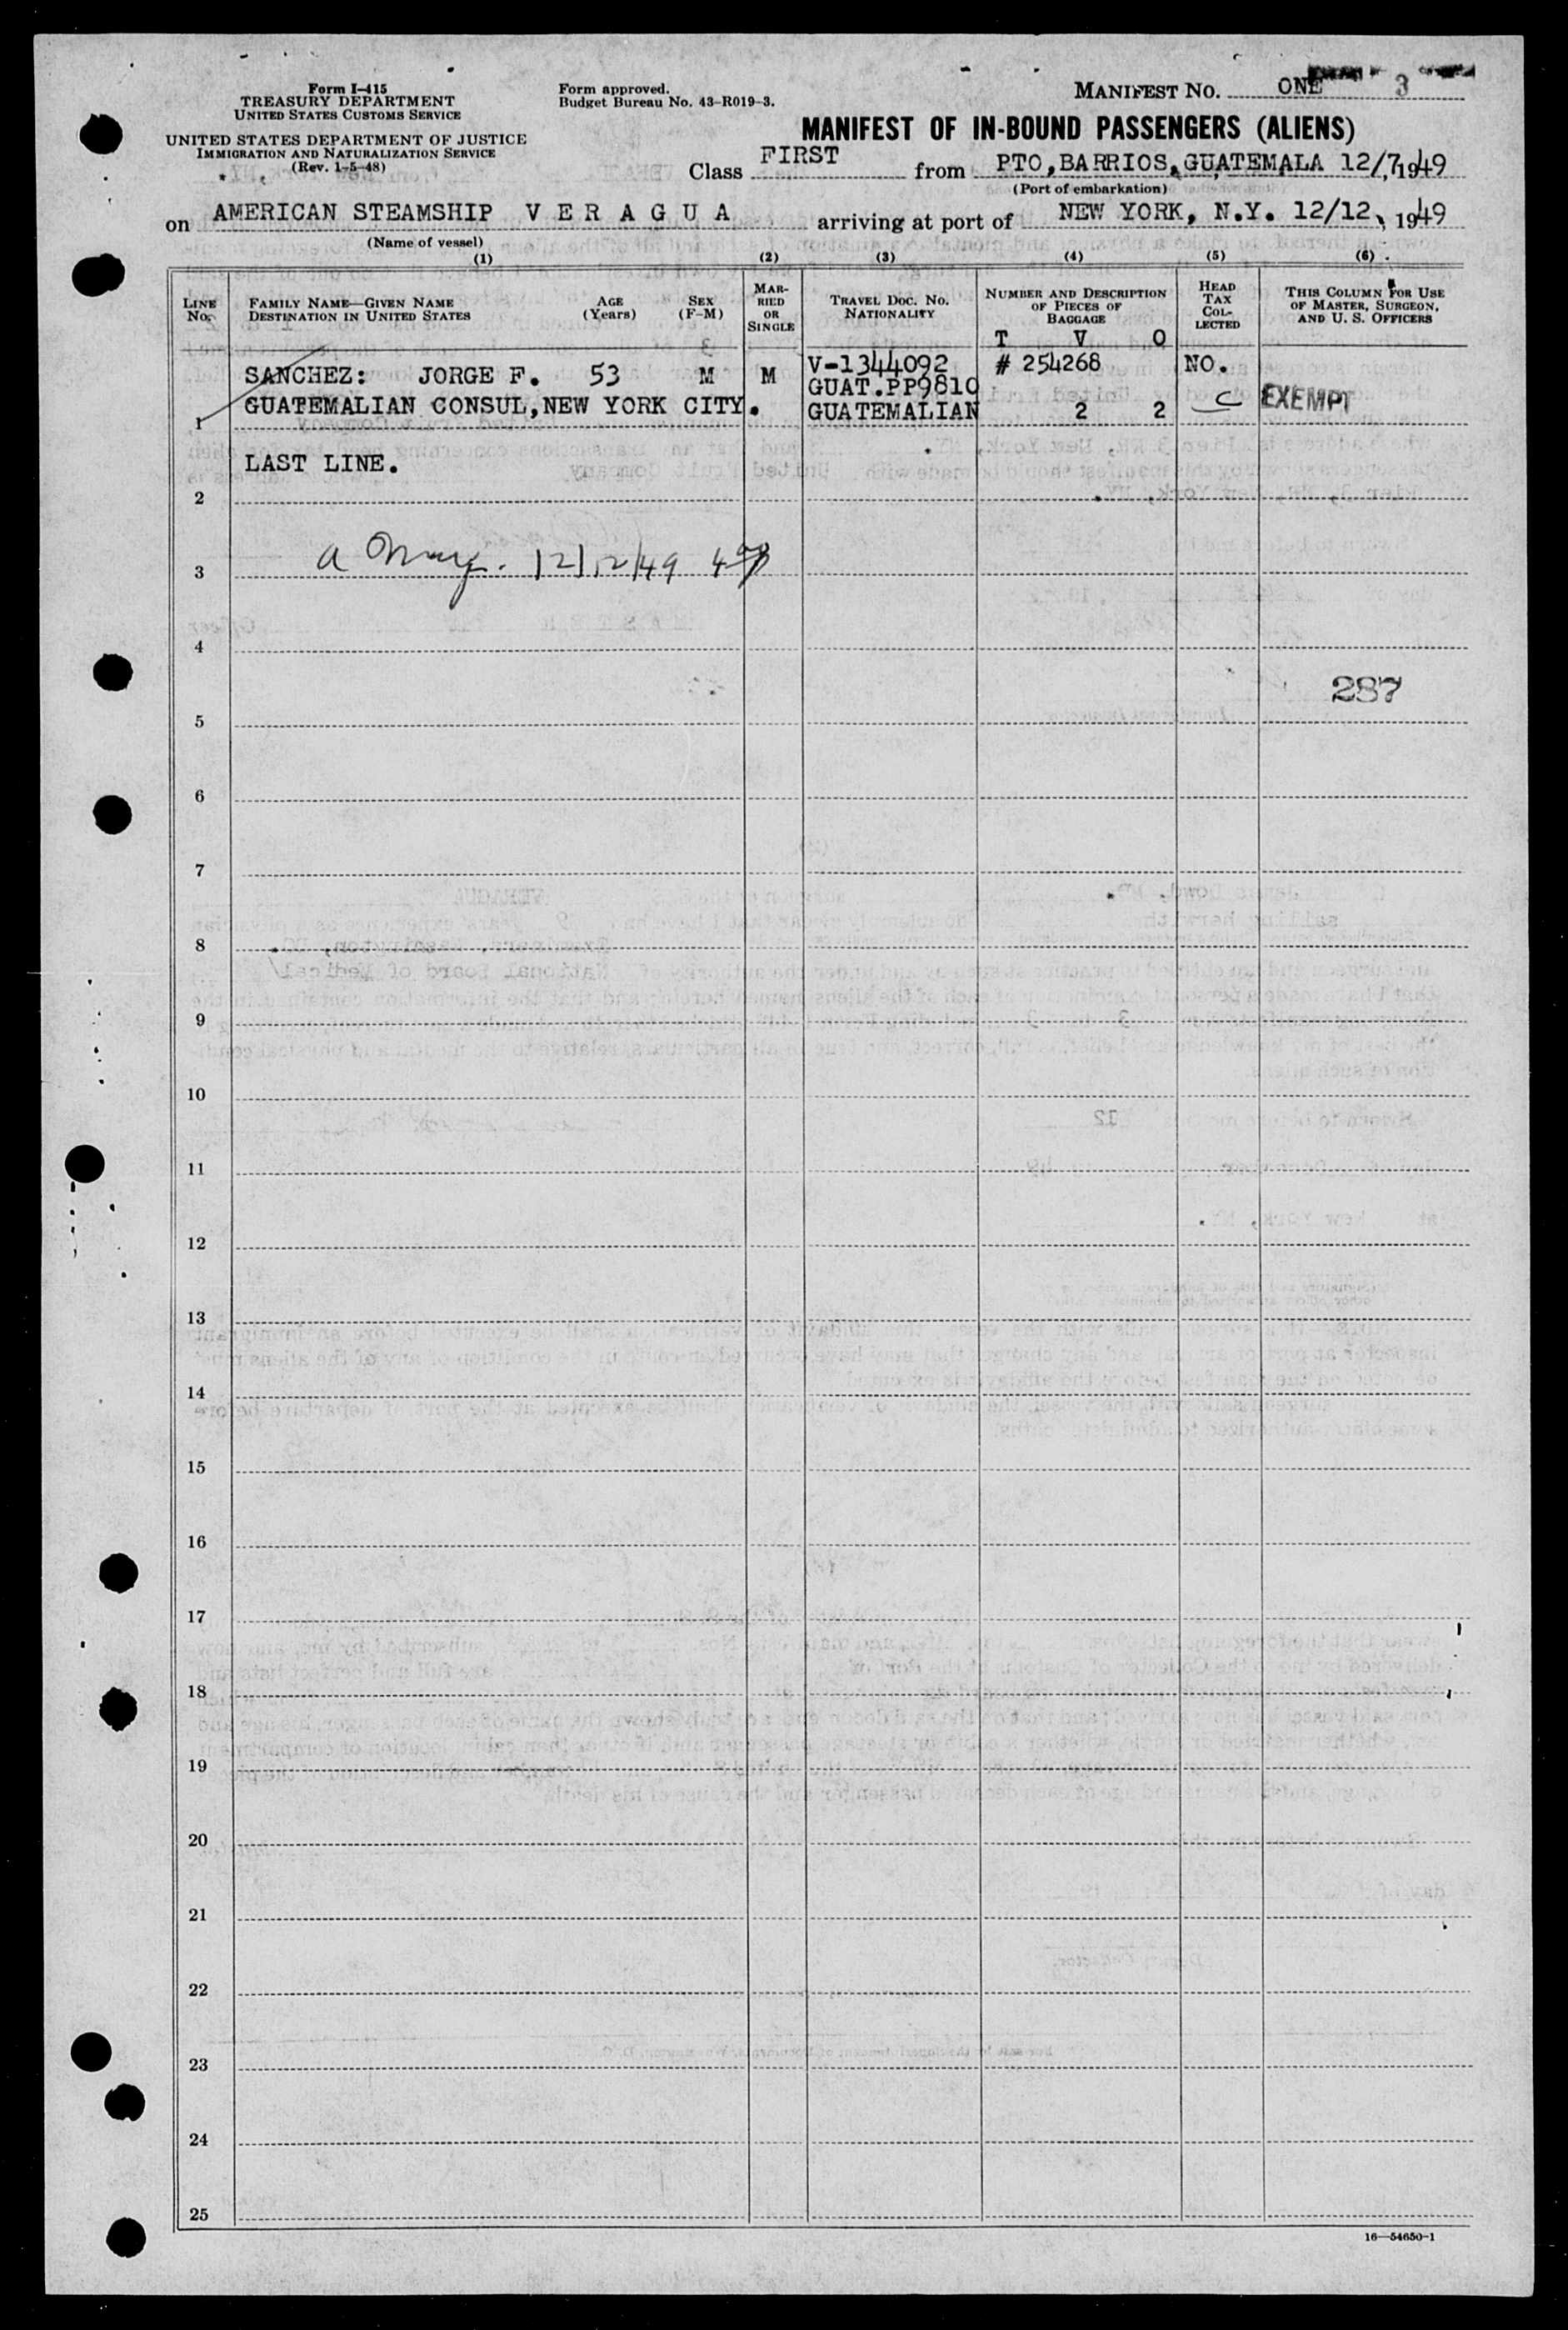 Form I-415
TREASURY DEPARTMENT
UNITED STATES CUSTOMS SERVICE
UNITED STATES DEPARTMENT OF JUSTICE
IMMIGRATION AND NATURALIZATION SERVICE
(Rev. 1-5-48)
Form approved.
Budget Bureau No. 43-R019-3.
MANIFEST NO. ONE 3
MANIFEST OF IN-BOUND PASSENGERS (ALIENS)
Class FIRST from PTO,BARRIOS,GUATEMALA 12/7, 1949
(Port of embarkation)
on AMERICAN STEAMSHIP V E R A G U A arriving at port of NEW YORK, N.Y. 12/12, 1949
(Name of vessel)
(1) (2) (3) (4) (5) (6)
LINE NO.
FAMILY NAME—GIVEN NAME
DESTINATION IN UNITED STATES
AGE
(Years)
SEX
(F-M)
MAR-
RIED
OR
SINGLE
TRAVEL DOC. NO.
NATIONALITY
NUMBER AND DESCRIPTION
OF PIECES OF
BAGGAGE
T V O
HEAD
TAX
COL-
LECTED
THIS COLUMN FOR USE
OF MASTER, SURGEON,
AND U. S. OFFICERS
SANCHEZ: JORGE F. 53 M M V-1344092 # 254268 NO.
GUAT.PP9810
1 GUATEMALIAN CONSUL,NEW YORK CITY. GUATEMALIAN 2 2 C EXEMPT
LAST LINE.
2
3 12/12/49
4
287
5
6
7
8
9
10
11
12
13
14
15
16
17
18
19
20
21
22
23
24
25
16—54650-1